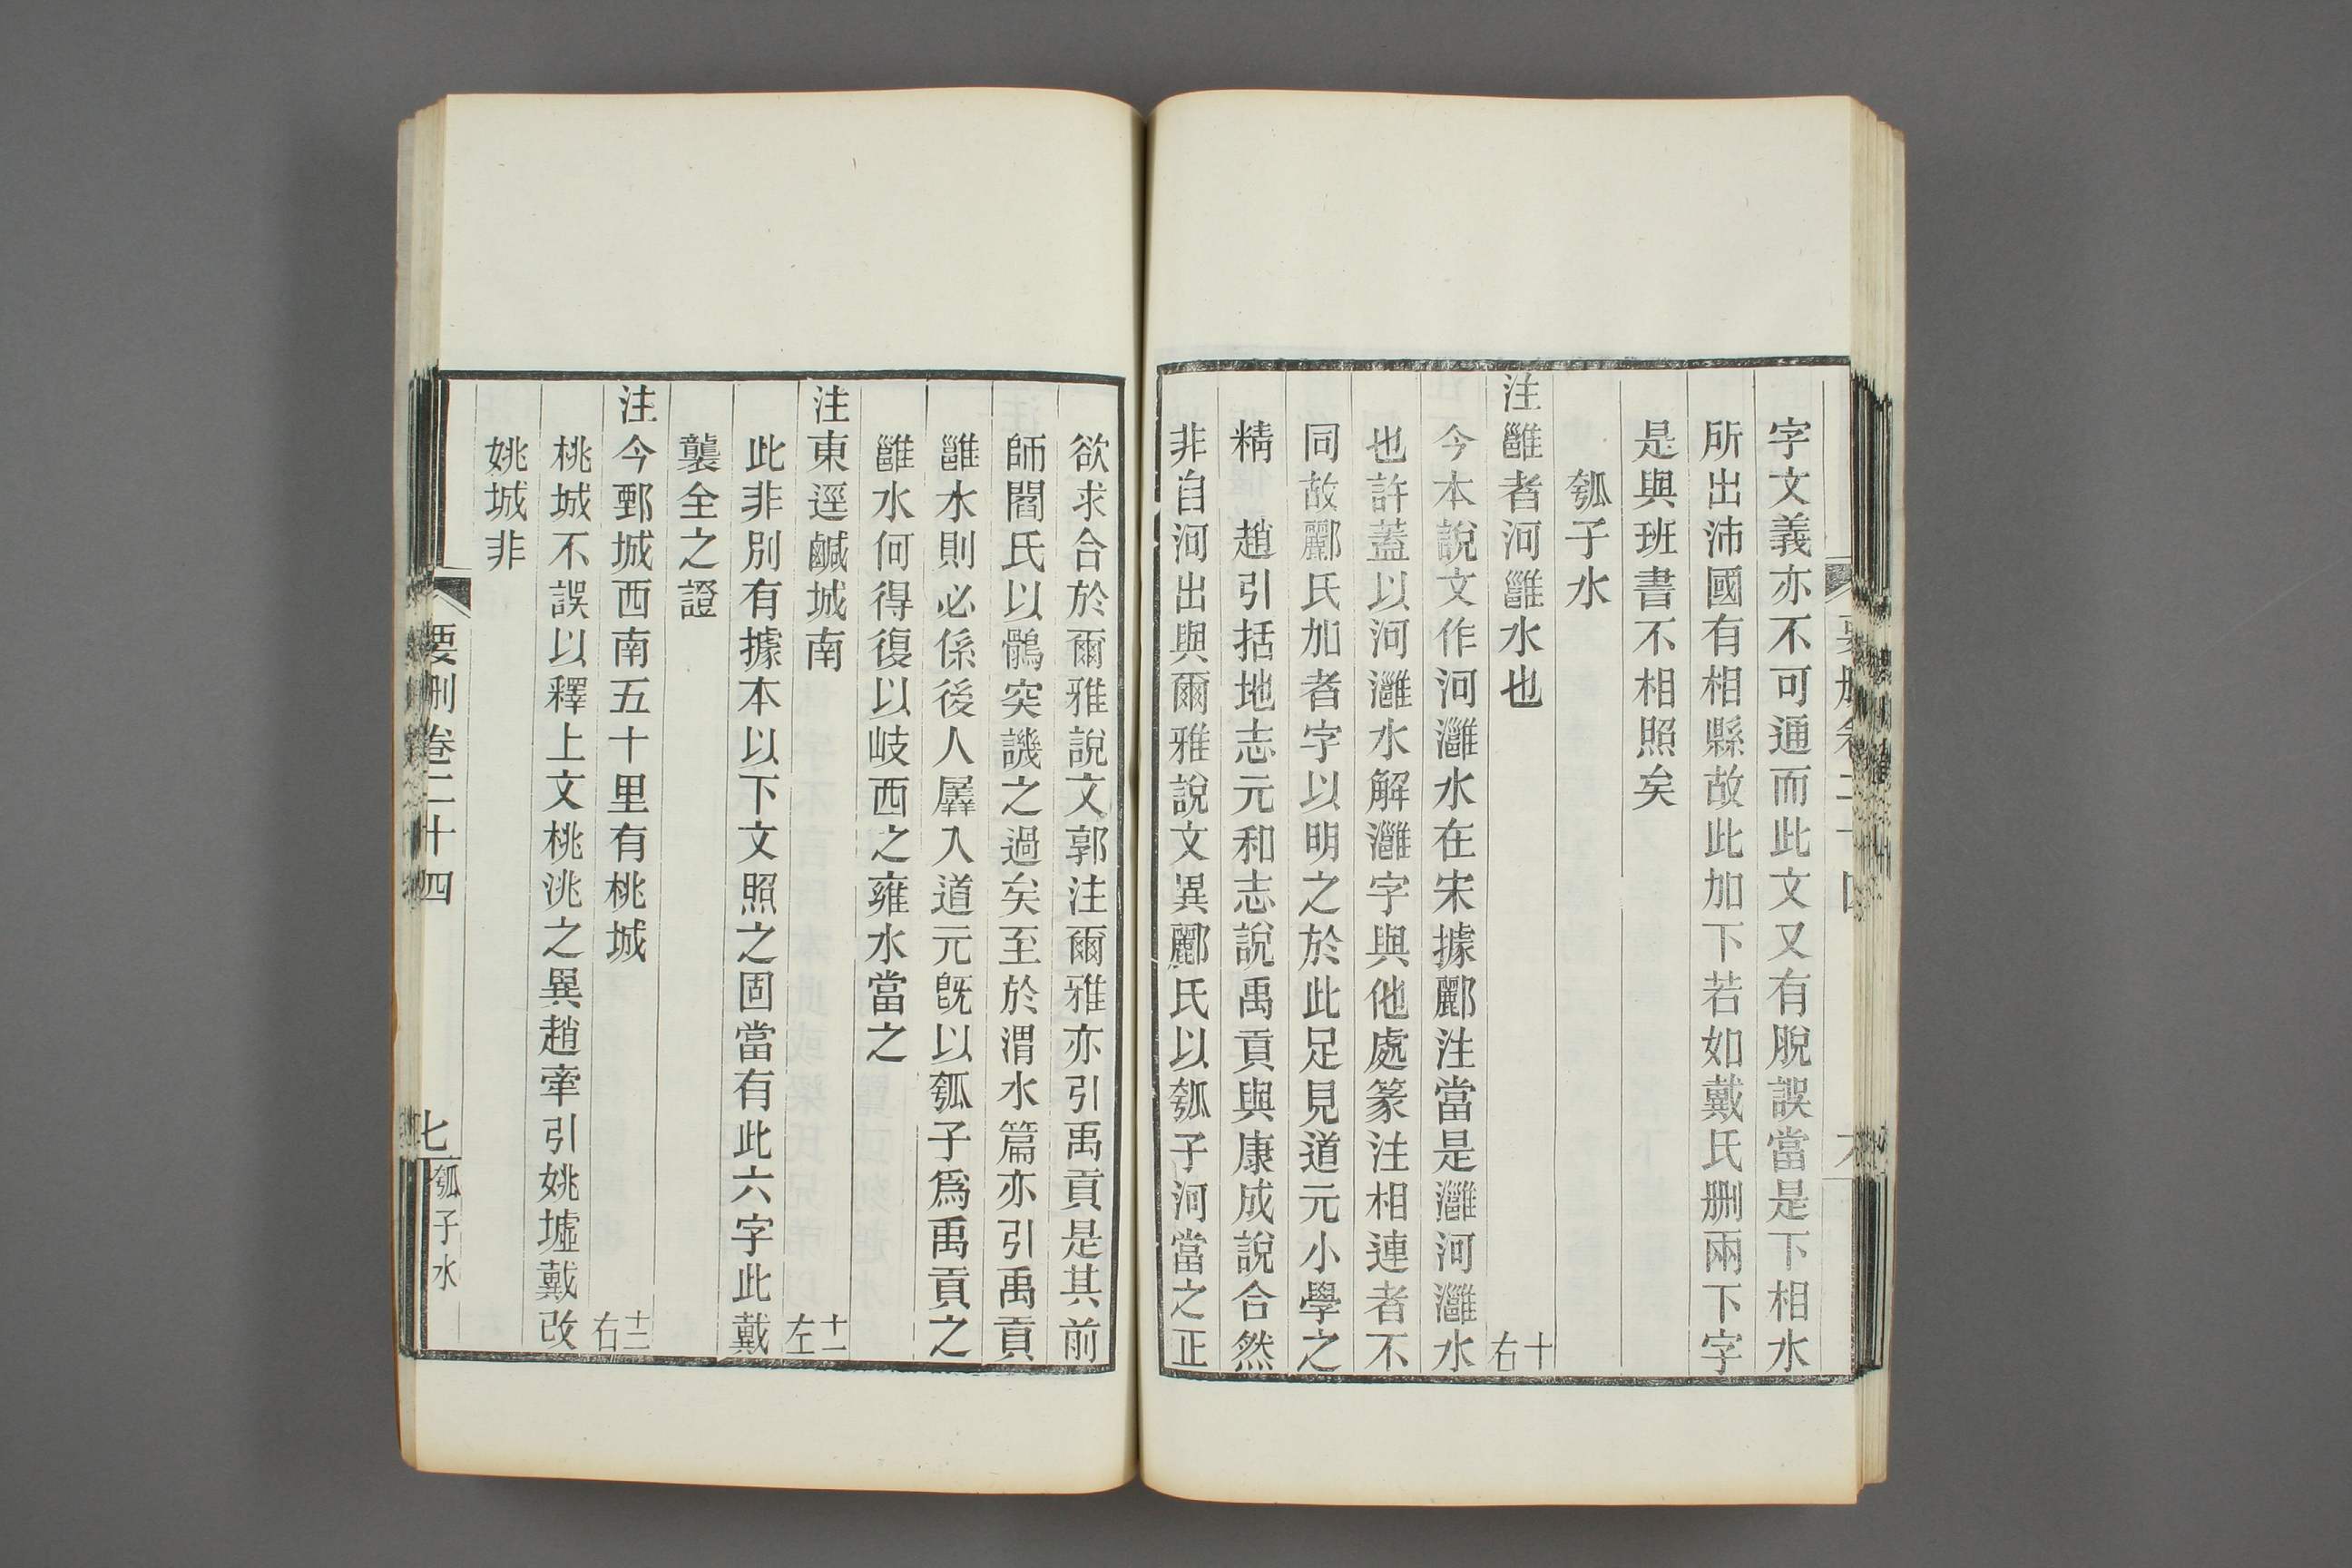 字文義亦不可通而此文又有脫誤當是下相水
所出沛國有相縣故此加下若如戴氏刪兩下字
是與班書不相照矣
瓠子水
注雝者河雝水也 十右
今本說文作河灉水在宋據酈注當是灉河灉水
也許蓋以河灉水解灉字與他處篆注相連者不
同故酈氏加者字以明之於此足見道元小學之
精 趙引括地志元和志說禹貢與康成說合然
非自河出與爾雅說文異酈氏以瓠子河當之正
欲求合於爾雅說文郭注爾雅亦引禹貢是其前
師閻氏以鶻突譏之過矣至於渭水篇亦引禹貢
雝水則必係後人羼入道元旣以瓠子爲禹貢之
雝水何得復以岐西之雍水當之
注東逕鹹城南 十一左
此非別有據本以下文照之固當有此六字此戴
襲全之證
注今鄄城西南五十里有桃城 十二右
桃城不誤以釋上文桃洮之異趙牽引姚墟戴改
姚城非
要刪卷二十四 七 瓠子水